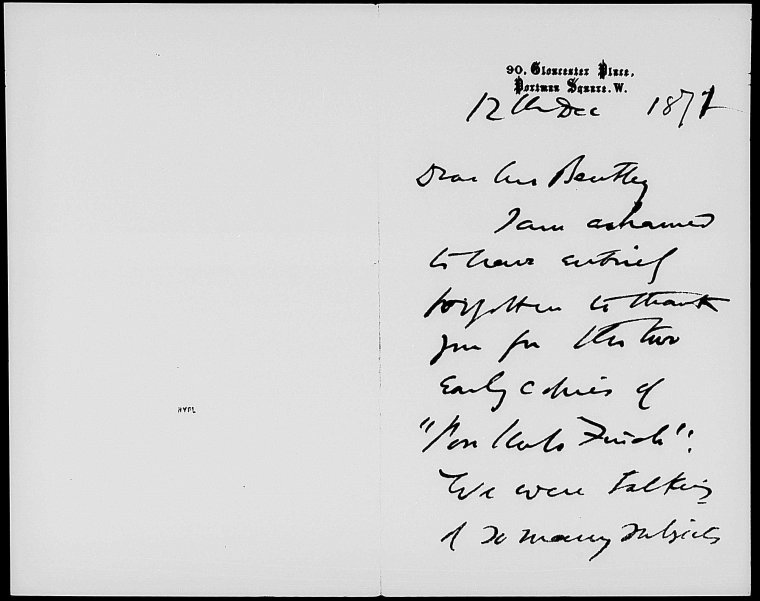 90, Gloucester Place,
Portman Square. W.
12th Dec 1871
Dear Mr Bentley
I am ashamed
to have entirely
forgotten to thank
you for the two
early copies of
"Poor Miss Finch".
We were talking
of so many subjects